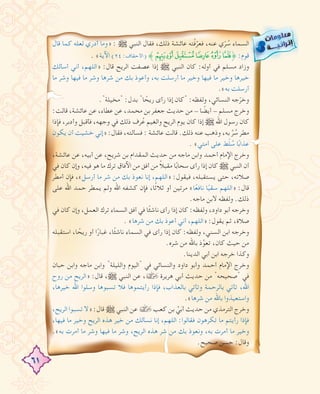 معلومات إثرائية
السماء سُرِّي عنه، فعرَّفته عائشة ذلك، فقال النبي ﷺ : «وما أدري لعله كما قال
قوم: ﴿فَلَمَّا رَأَوْهُ عَارِضًا مُّسْتَقْبِلَ أَوْدِيَتِهِمْ﴾ [الأحقاف: ٢٤] الآية» .
وزاد مسلم في أوله: كان النبي ﷺ إذا عصفت الريح قال: «اللهم، اني أسألك
خيرها وخير ما فيها وخير ما أرسلت به، وأعوذ بك من شرها وشر ما فيها وشر ما
أرسلت به».
وخرّجه النسائي، ولفظه: "كان إذا رأى ريحًا" بدل: "مخيلة".
وخرج مسلم – أيضًا – من حديث جعفر بن محمد، عن عطاء، عن عائشة، قالت:
كان رسول الله ﷺ إذا كان يوم الريح والغيم عُرف ذلك في وجهه، فأقبل وأدبر، فإذا
مطر سُرَّ به، وذهب عنه ذلك. قالت عائشة : فسألته، فقال: «إني خشيت أن يكون
عذابًا سُلط على أمتي» .
وخرج الإمام أحمد وابن ماجه من حديث المقدام بن شريح، عن أبيه، عن عائشة،
أن النبي ﷺ كان إذا رأى سحابًا مقبلاً من أفق من الآفاق ترك ما هو فيه، وإن كان في
صلاته، حتى يستقبله، فيقول: «اللهم، إنا نعوذ بك من شر ما أرسل»، فإن أمطر
قال: «اللهم سقيًا نافعًا» مرتين أو ثلاثًا، فإن كشفه الله ولم يمطر حمد الله على
ذلك. ولفظه لابن ماجه.
وخرجه ابو داود، ولفظه: كان إذا رأى ناشئًا في أفق السماء ترك العمل، وإن كان في
صلاة، ثم يقول: «اللهم، اني أعوذ بك من شرها» .
وخرجه ابن السني، ولفظه: كان إذا رأى في السماء ناشئًا، غبارًا أو ريحًا، استقبله
من حيث كان، تعوَّذ بالله من شره.
وكذا خرجه ابن ابي الدنيا.
وخرج الإمام أحمد وابو داود والنسائي في "اليوم والليلة" وابن ماجه وابن حبان
في "صحيحه" من حديث أبي هريرة، عن النبي ﷺ، قال: «الريح من روح
الله، تأتي بالرحمة وتأتي بالعذاب، فإذا رأيتموها فلا تسبوها وسلوا الله خيرها،
واستعيذوا بالله من شرها».
وخرج الترمذي من حديث أبيّ بن كعب، عن النبي ﷺ قال: «لا تسبوا الريح،
فإذا رأيتم ما تكرهون فقالوا: اللهم، إنا نسألك من خير هذه الريح وخير ما فيها،
وخير ما أمرت به، ونعوذ بك من شر هذه الريح، وشر ما فيها وشر ما أمرت به».
وقال: حسن صحيح.
٦١